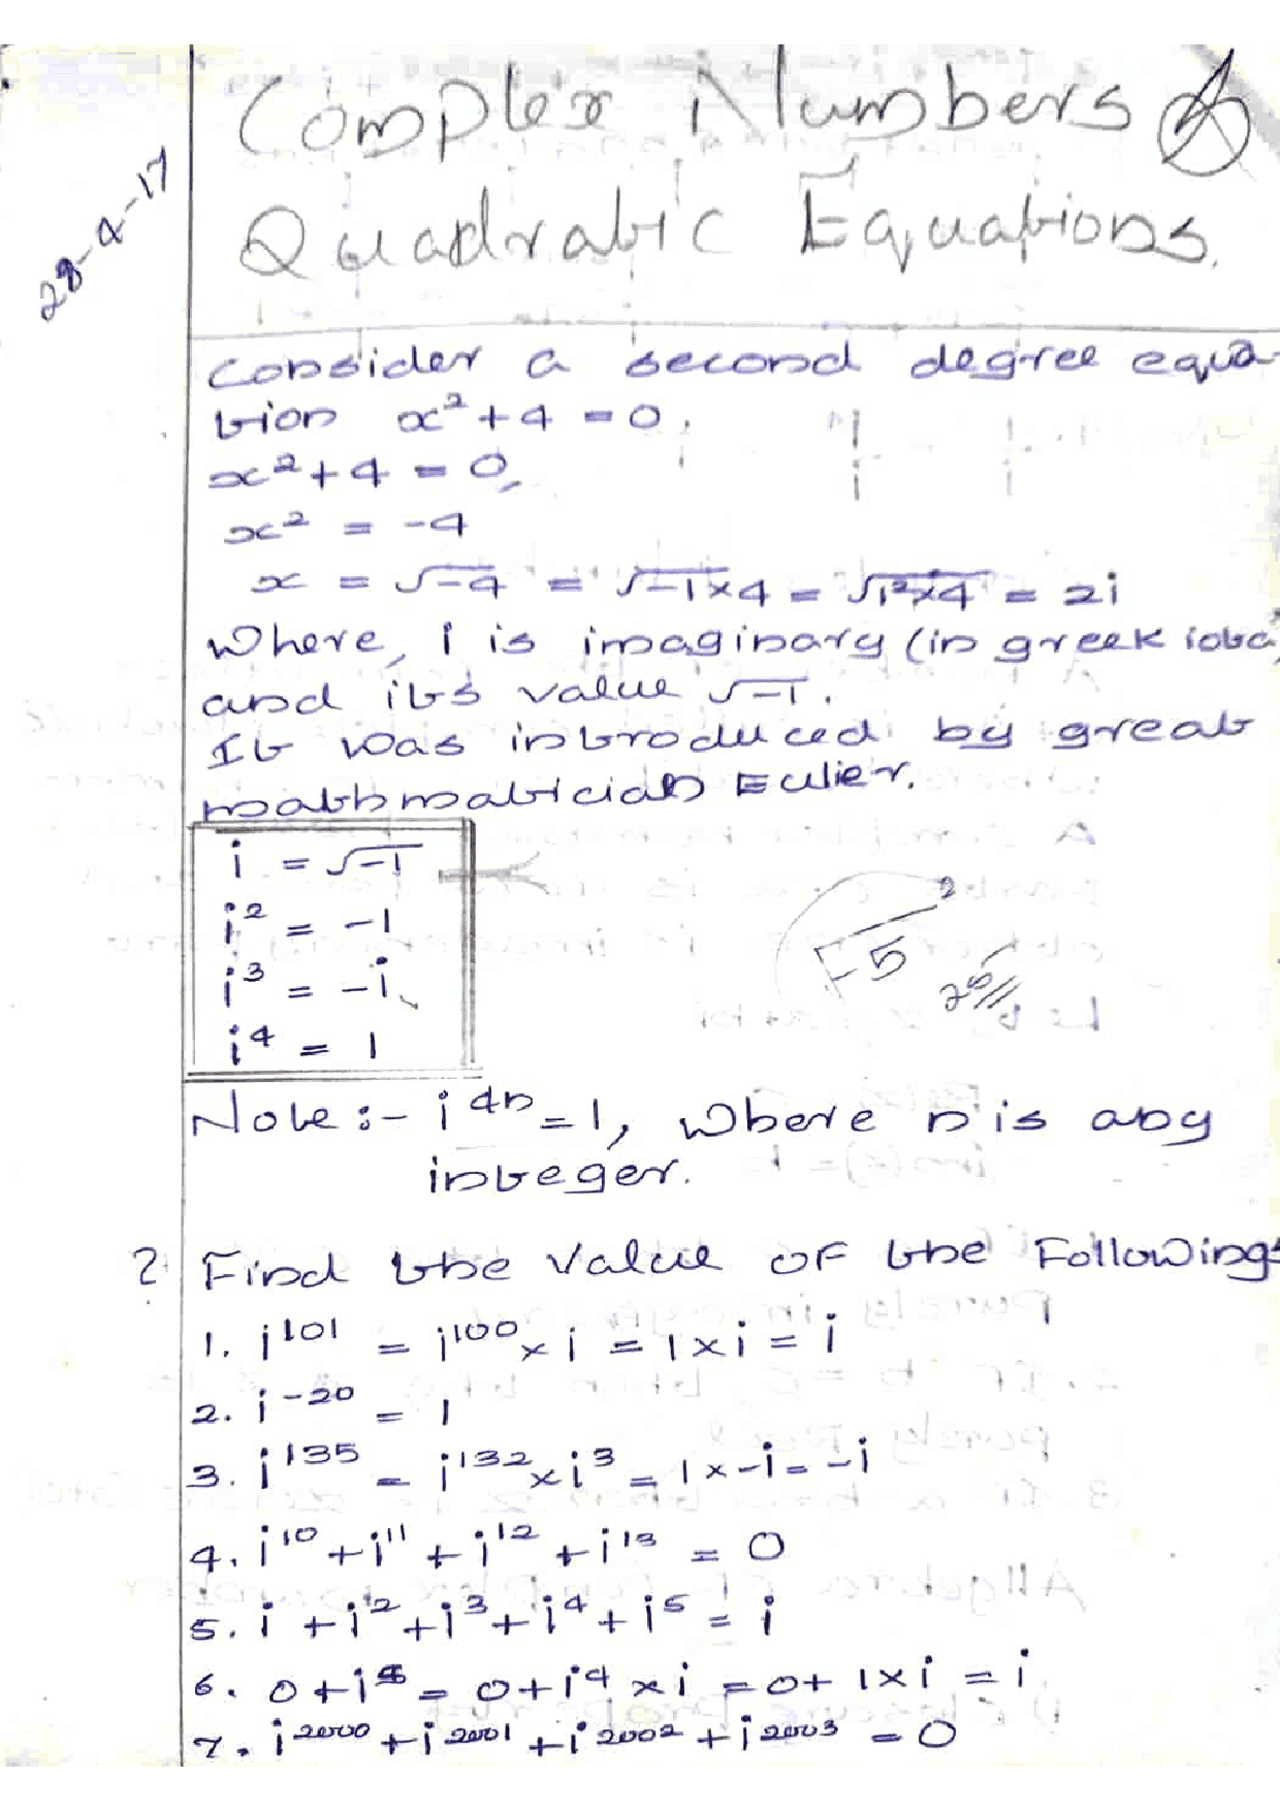 Complex Numbers &
Quadratic Equations.
28-9-17
Consider a second degree equa-
tion x² + 4 = 0.
x² + 4 = 0,
x² = -4
x = √-4 = √-1×4 = √i²×4 = 2i
Where, i is imaginary (in greek iota)
and its value √-1.
It was introduced by great
mathmatician Eulier.
i = √-1
i² = -1
i³ = -i
i⁴ = 1
√-5 ²
Note :- i⁴ⁿ = 1, where n is any
integer.
? Find the value of the Followings
1. i¹⁰¹ = i¹⁰⁰ × i = 1 × i = i
2. i⁻²⁰ = 1
3. i¹³⁵ = i¹³² × i³ = 1 × -i = -i
4. i¹⁰ + i¹¹ + i¹² + i¹³ = 0
5. i + i² + i³ + i⁴ + i⁵ = i
6. 0 + i⁵ = 0 + i⁴ × i = 0 + 1 × i = i
7. i²⁰⁰⁰ + i²⁰⁰¹ + i²⁰⁰² + i²⁰⁰³ = 0